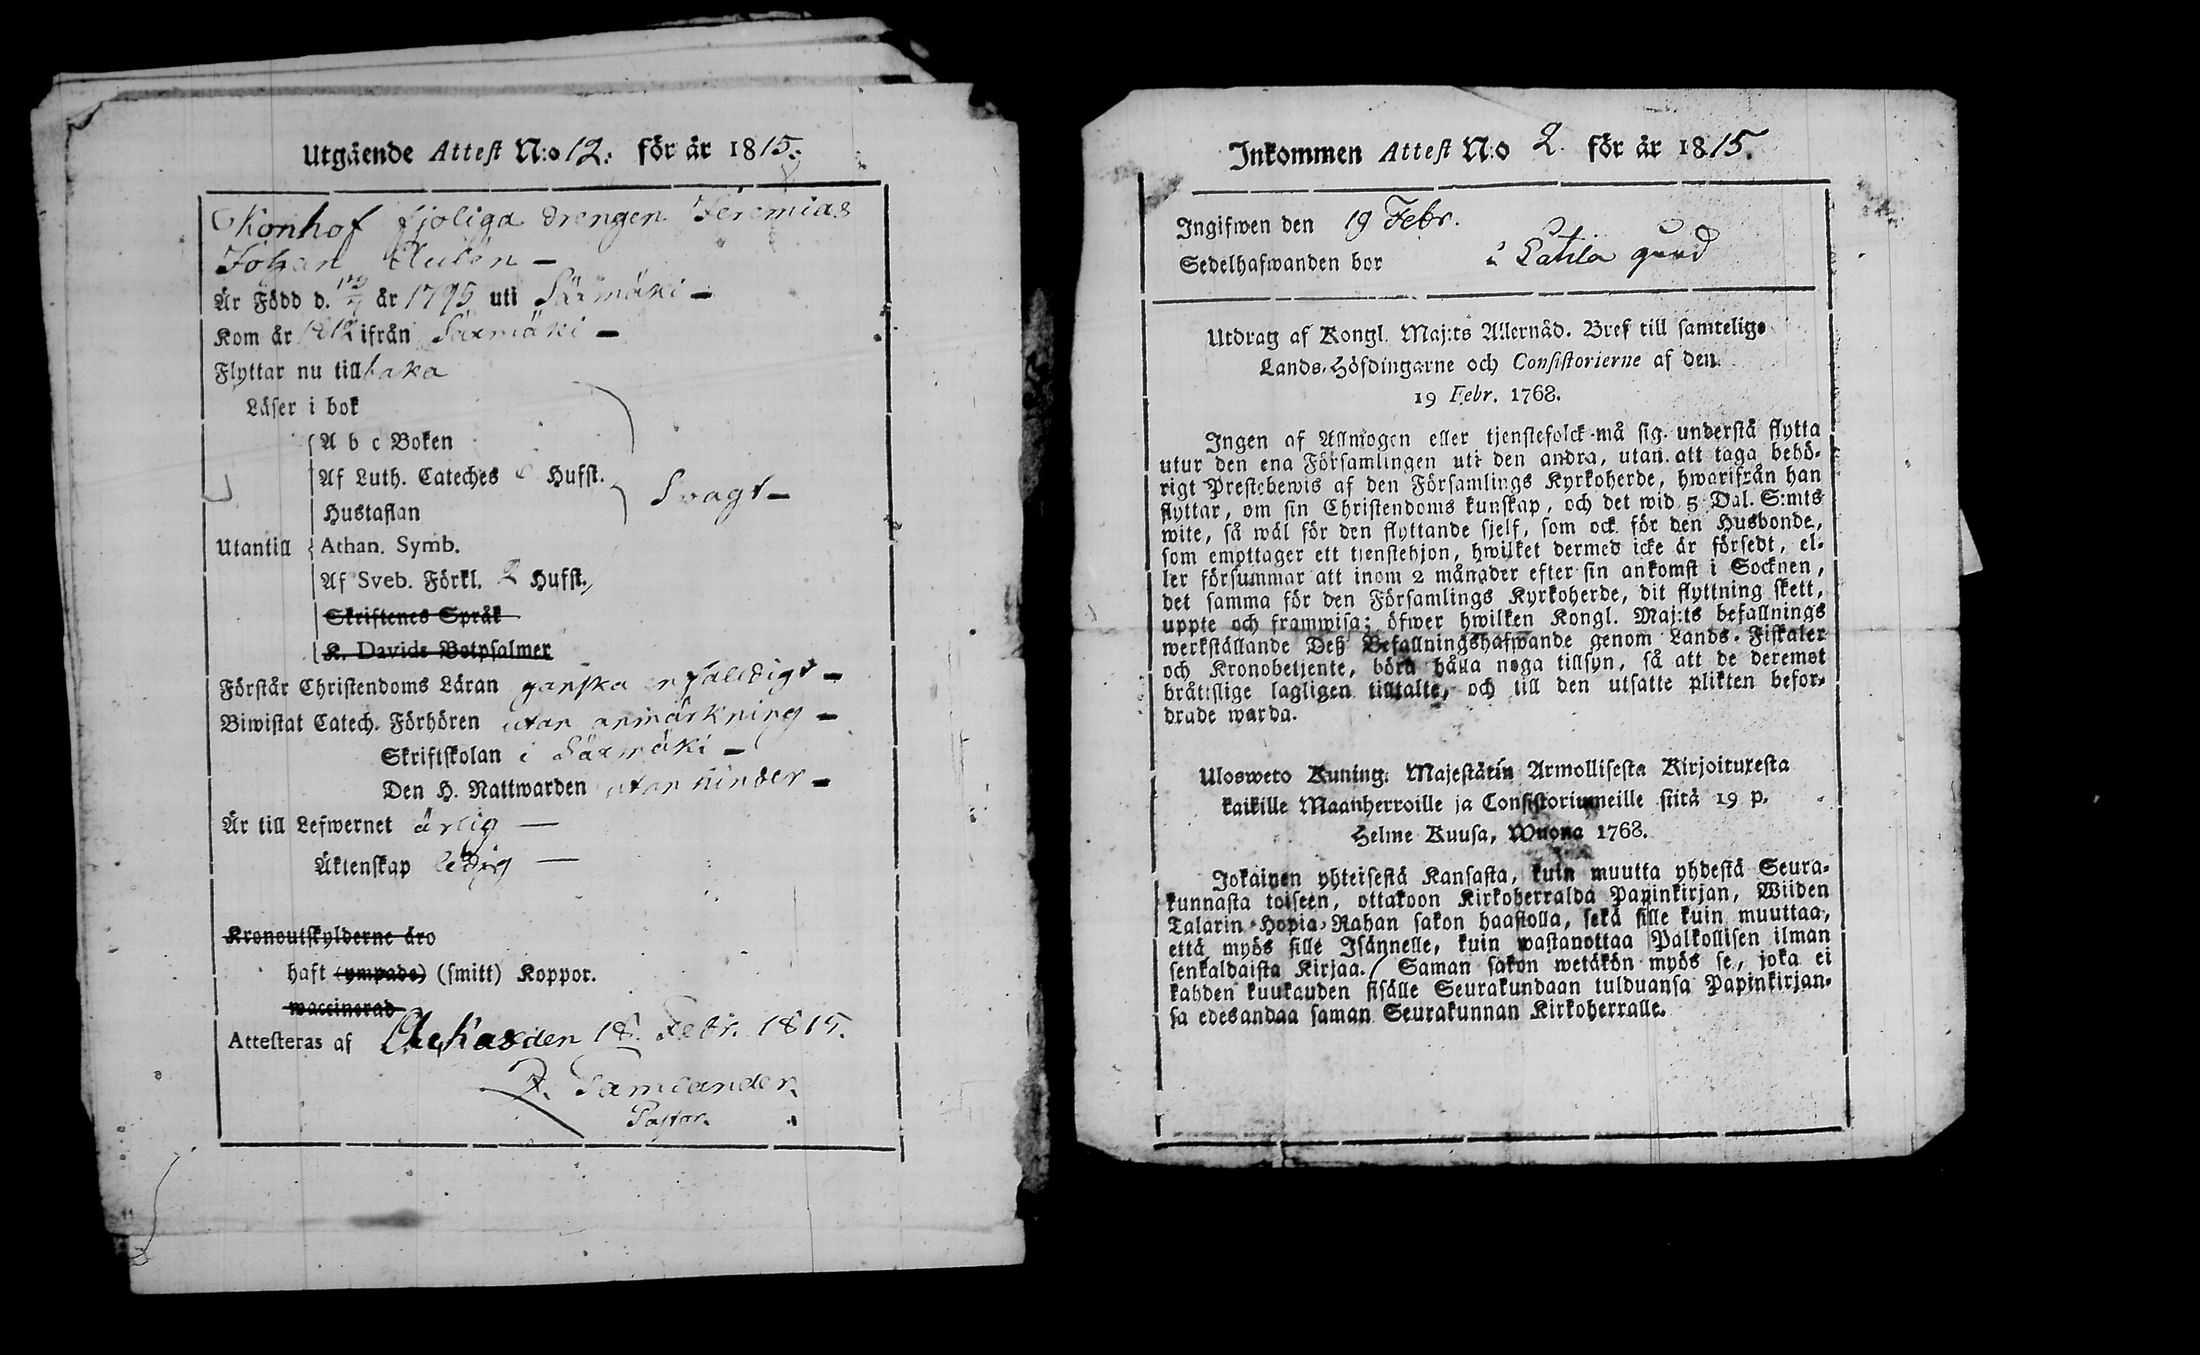 Utgående Attest N:o 12. för år 1815.
Konhof fjoliga drengen Jeremias
Johan
Är Född d. år 1795 uti Säxmäki
Kom år 1812 ifrån Säxmäki
Flyttar nu tillbaka
Läser i bok
A b c Boken
Af Luth. Cateches Hufst.
Hustaflan
Svagt
Utantill Athan. Symb.
Af Sveb. Förkl. 2 Hufst.
Skriftenes Språk
K. Davids Botpsalmer
Förstår Christendoms Läran ganska enfaldigt
Biwistat Catech. Förhören utan anmärkning
Skriftskolan i Säxmäki
Den H. Nattwarden utan hinder
Är till Lefwernet ärlig
Äktenskap ledig
Kronoutskylderne äro
haft (ympade) (smitt) Koppor.
waccinerad
Attesteras af den 18. Febr. 1815.
Tamlander.
Pastor.
Inkommen Attest N:o 2. för år 1815.
Ingifwen den 19 Febr.
Sedelhafwanden bor
Utdrag af Kongl. Maj:ts Allernåd. Bref till samtelige
Lands-Höfdingarne och Consistorierne af den
19 Febr. 1768.
Ingen af Allmogen eller tjenstefolck må sig understå flytta
utur den ena Församlingen uti den andra, utan att taga behö-
rigt Prestebewis af den Församlings Kyrkoherde, hwarifrån han
flyttar, om sin Christendoms kunskap, och det wid 5 Dal. S:mts
wite, så wäl för den flyttande sjelf, som ock för den Husbonde,
som emottager ett tienstehjon, hwilket dermed icke är försedt, el-
ler försummar att inom 2 månader efter sin ankomst i Socknen,
det samma för den Församlings Kyrkoherde, dit flyttning skett,
uppte och framwisa; öfwer hwilken Kongl. Maj:ts befallnings
werkställande Deß Befallningshafwande genom Lands-Fiskaler
och Kronobetjente, böra hålla noga tillsyn, så att de deremot
bråttslige lagligen tilltalte, och till den utsatte plikten befor-
drade warda.
Ulosweto Kuning: Majestätin Armollisesta Kirjoituxesta
kaikille Maanherroille ja Consistoriumeille siitä 19 p.
Helme Kuusa, Wuona 1768.
Jokainen yhteisestä Kansasta, kuin muutta yhdestä Seura-
kunnasta toiseen, ottakoon Kirkoherralda Papinkirjan, Wiiden
Talarin Hopia-Rahan sakon haastolla, sekä sille kuin muuttaa,
että myös sille Isännelle, kuin wastanottaa Palkollisen ilman
senkaldaista Kirjaa. Saman sakon wetäkön myös se, joka ei
kahden kuukauden sisälle Seurakundaan tulduansa Papinkirjan-
sa edesandaa saman Seurakunnan Kirkoherralle.